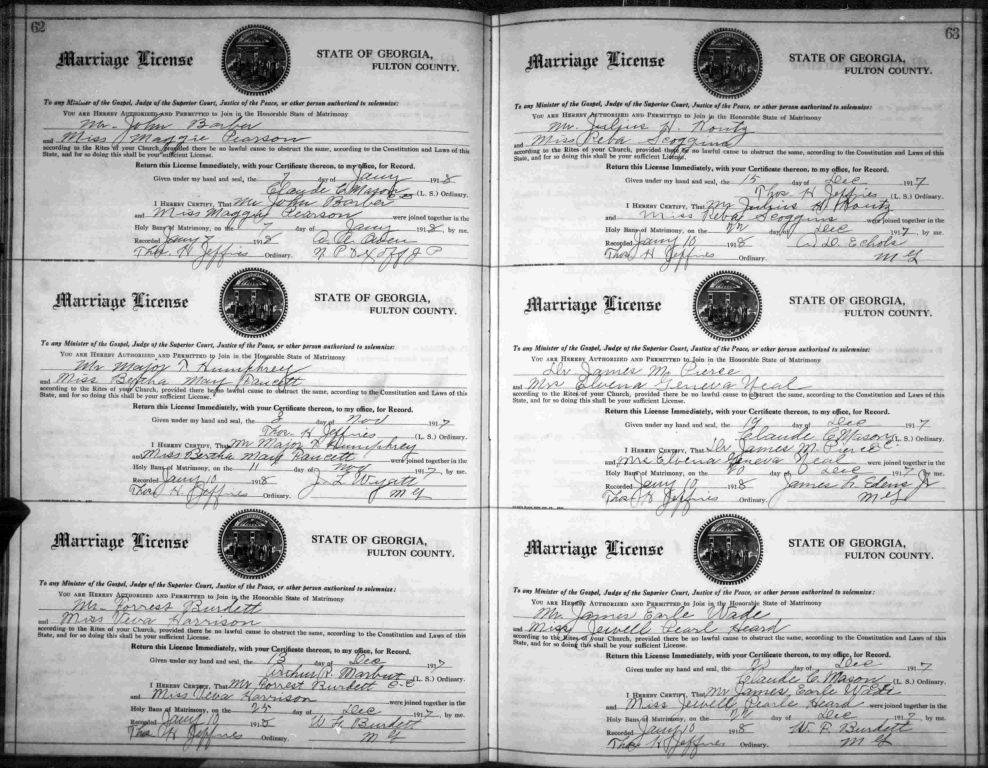 62
Marriage License
STATE OF GEORGIA,
FULTON COUNTY.
To any Minister of the Gospel, Judge of the Superior Court, Justice of the Peace, or other person authorized to solemnize:
YOU ARE HEREBY AUTHORIZED AND PERMITTED to Join in the Honorable State of Matrimony
Mr. John Barber
and Miss Maggie Pearson
according to the Rites of your Church, provided there be no lawful cause to obstruct the same, according to the Constitution and Laws of this
State, and for so doing this shall be your sufficient License.
Return this License Immediately, with your Certificate thereon, to my office, for Record.
Given under my hand and seal, the 7 day of Jany 1918
Claude C Mason (L. S.) Ordinary.
I HEREBY CERTIFY, That Mr John Barber
and Miss Maggie Pearson were joined together in the
Holy Bans of Matrimony, on the 7 day of Jany 1918, by me.
Recorded Jany 8 1918
Thos H Jeffries Ordinary.
Marriage License
STATE OF GEORGIA,
FULTON COUNTY.
To any Minister of the Gospel, Judge of the Superior Court, Justice of the Peace, or other person authorized to solemnize:
YOU ARE HEREBY AUTHORIZED AND PERMITTED to Join in the Honorable State of Matrimony
Mr Major T Humphrey
and Miss Bertha May Faucett
according to the Rites of your Church, provided there be no lawful cause to obstruct the same, according to the Constitution and Laws of this
State, and for so doing this shall be your sufficient License.
Return this License Immediately, with your Certificate thereon, to my office, for Record.
Given under my hand and seal, the 8 day of Nov 1917
Thos H Jeffries (L. S.) Ordinary.
I HEREBY CERTIFY, That Mr Major T Humphrey
and Miss Bertha May Faucett were joined together in the
Holy Bans of Matrimony, on the 11 day of Nov 1917, by me.
Recorded Jany 10 1918 J L Wyatt
Thos H Jeffries Ordinary. M G
Marriage License
STATE OF GEORGIA,
FULTON COUNTY.
To any Minister of the Gospel, Judge of the Superior Court, Justice of the Peace, or other person authorized to solemnize:
YOU ARE HEREBY AUTHORIZED AND PERMITTED to Join in the Honorable State of Matrimony
Mr. Forrest Burdett
and Miss Veva Harrison
according to the Rites of your Church, provided there be no lawful cause to obstruct the same, according to the Constitution and Laws of this
State, and for so doing this shall be your sufficient License.
Return this License Immediately, with your Certificate thereon, to my office, for Record.
Given under my hand and seal, the 13 day of Dec 1917
Arthur R. Marbut C-C (L. S.) Ordinary.
I HEREBY CERTIFY, That Mr Forrest Burdett
and Miss Veva Harrison were joined together in the
Holy Bans of Matrimony, on the 25 day of Dec 1917, by me.
Recorded Jany 10 1918 W. F. Burdett
Thos H Jeffries Ordinary. M G
63
Marriage License
STATE OF GEORGIA,
FULTON COUNTY.
To any Minister of the Gospel, Judge of the Superior Court, Justice of the Peace, or other person authorized to solemnize:
YOU ARE HEREBY AUTHORIZED AND PERMITTED to Join in the Honorable State of Matrimony
Mr. Julius H. Kontz
and Miss Reba Scoggins
according to the Rites of your Church, provided there be no lawful cause to obstruct the same, according to the Constitution and Laws of this
State, and for so doing this shall be your sufficient License.
Return this License Immediately, with your Certificate thereon, to my office, for Record.
Given under my hand and seal, the 15 day of Dec 1917
Thos H Jeffries (L. S.) Ordinary.
I HEREBY CERTIFY, That Mr Julius H Kontz
and Miss Reba Scoggins were joined together in the
Holy Bans of Matrimony, on the 22 day of Dec 1917, by me.
Recorded Jany 10 1918 D. Echols
Thos H Jeffries Ordinary. M G
Marriage License
STATE OF GEORGIA,
FULTON COUNTY.
To any Minister of the Gospel, Judge of the Superior Court, Justice of the Peace, or other person authorized to solemnize:
YOU ARE HEREBY AUTHORIZED AND PERMITTED to Join in the Honorable State of Matrimony
Dr James M. Pierce
and Mrs Elvena Geneva Neal
according to the Rites of your Church, provided there be no lawful cause to obstruct the same, according to the Constitution and Laws of this
State, and for so doing this shall be your sufficient License.
Return this License Immediately, with your Certificate thereon, to my office, for Record.
Given under my hand and seal, the 19 day of Dec 1917
Claude C Mason (L. S.) Ordinary.
I HEREBY CERTIFY, That Dr James M. Pierce
and Mrs Elvena Geneva Neal were joined together in the
Holy Bans of Matrimony, on the 20 day of Dec 1917, by me.
Recorded Jany 10 1918 James L. Edens Jr
Thos H Jeffries Ordinary. M G
Marriage License
STATE OF GEORGIA,
FULTON COUNTY.
To any Minister of the Gospel, Judge of the Superior Court, Justice of the Peace, or other person authorized to solemnize:
YOU ARE HEREBY AUTHORIZED AND PERMITTED to Join in the Honorable State of Matrimony
Mr. James Earle Wade
and Miss Jewell Pearl Heard
according to the Rites of your Church, provided there be no lawful cause to obstruct the same, according to the Constitution and Laws of this
State, and for so doing this shall be your sufficient License.
Return this License Immediately, with your Certificate thereon, to my office, for Record.
Given under my hand and seal, the 22 day of Dec 1917
Claude C. Mason (L. S.) Ordinary.
I HEREBY CERTIFY, That Mr James Earle Wade
and Miss Jewell Pearle Heard were joined together in the
Holy Bans of Matrimony, on the 24 day of Dec 1917, by me.
Recorded Jany 10 1918 W. F. Burdett
Thos H Jeffries Ordinary. M G